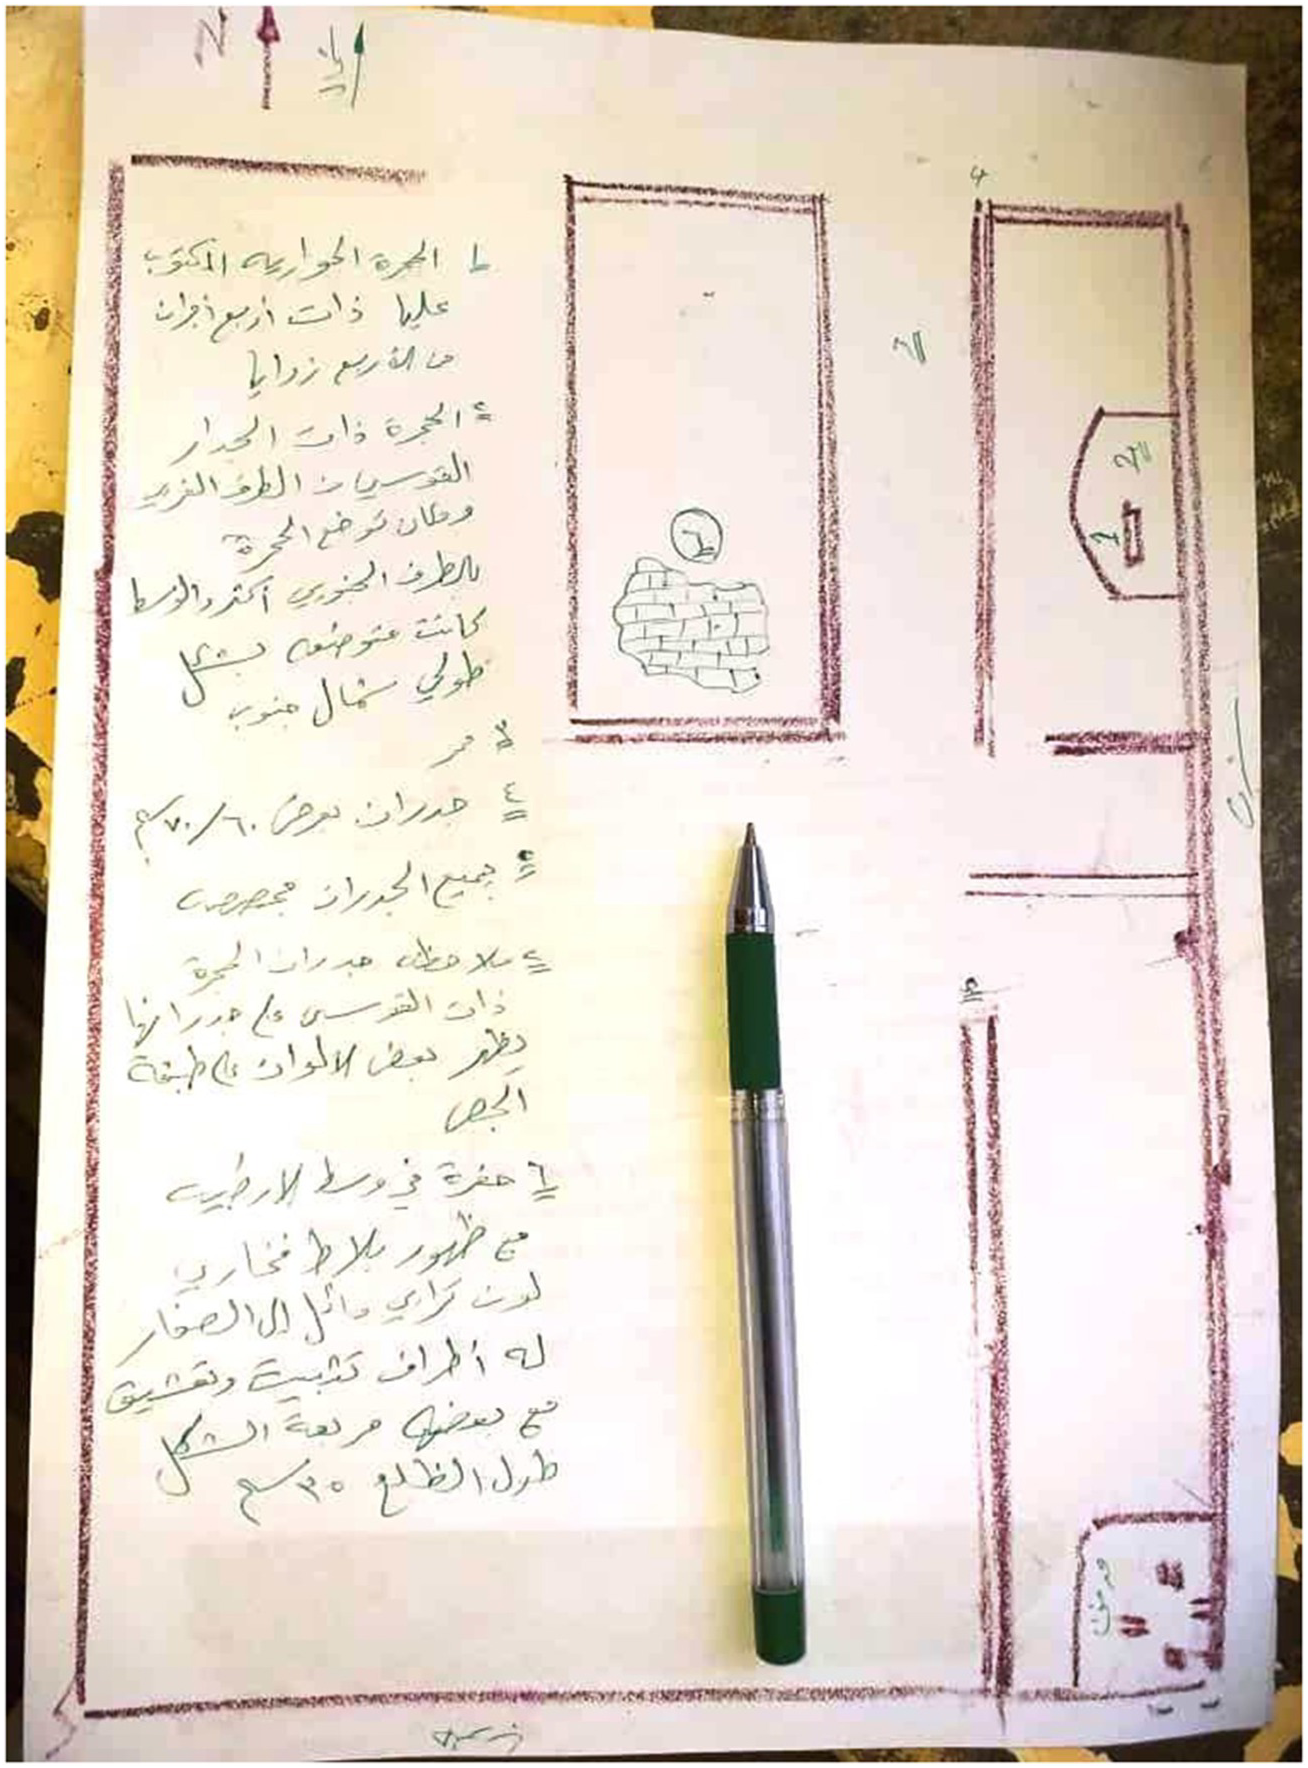 N
١ الحجرة الحواريه المكتوب
عليها ذات أربع أجران
من الأربع زوايا
٢ الحجرة ذات الجدار
القوسي من الطرف الغربي
وكان توضع الحجرة
بالطرف الجنوبي أكثر والوسط
كانت متوضعه بشكل
طولي شمال جنوب
٣ ممر
٤ جدران بعرض ٦٠/٧٠ سم
٥ جميع الجدران مجصصه
٢ ملاحظه جدران الحجرة
ذات القوسي على جدرانها
يظهر بعض الالوان على طبقة
الجص
٦ حفرة في وسط الارضيه
مع ظهور بلاط فخاري
لون كراري مائل إلى الصفار
له أطراف تثبيت وتعشيق
مع بعضها مربعة الشكل
طول الظلع ٣٥ سم
٦
٣
٤
٢
١
حوض